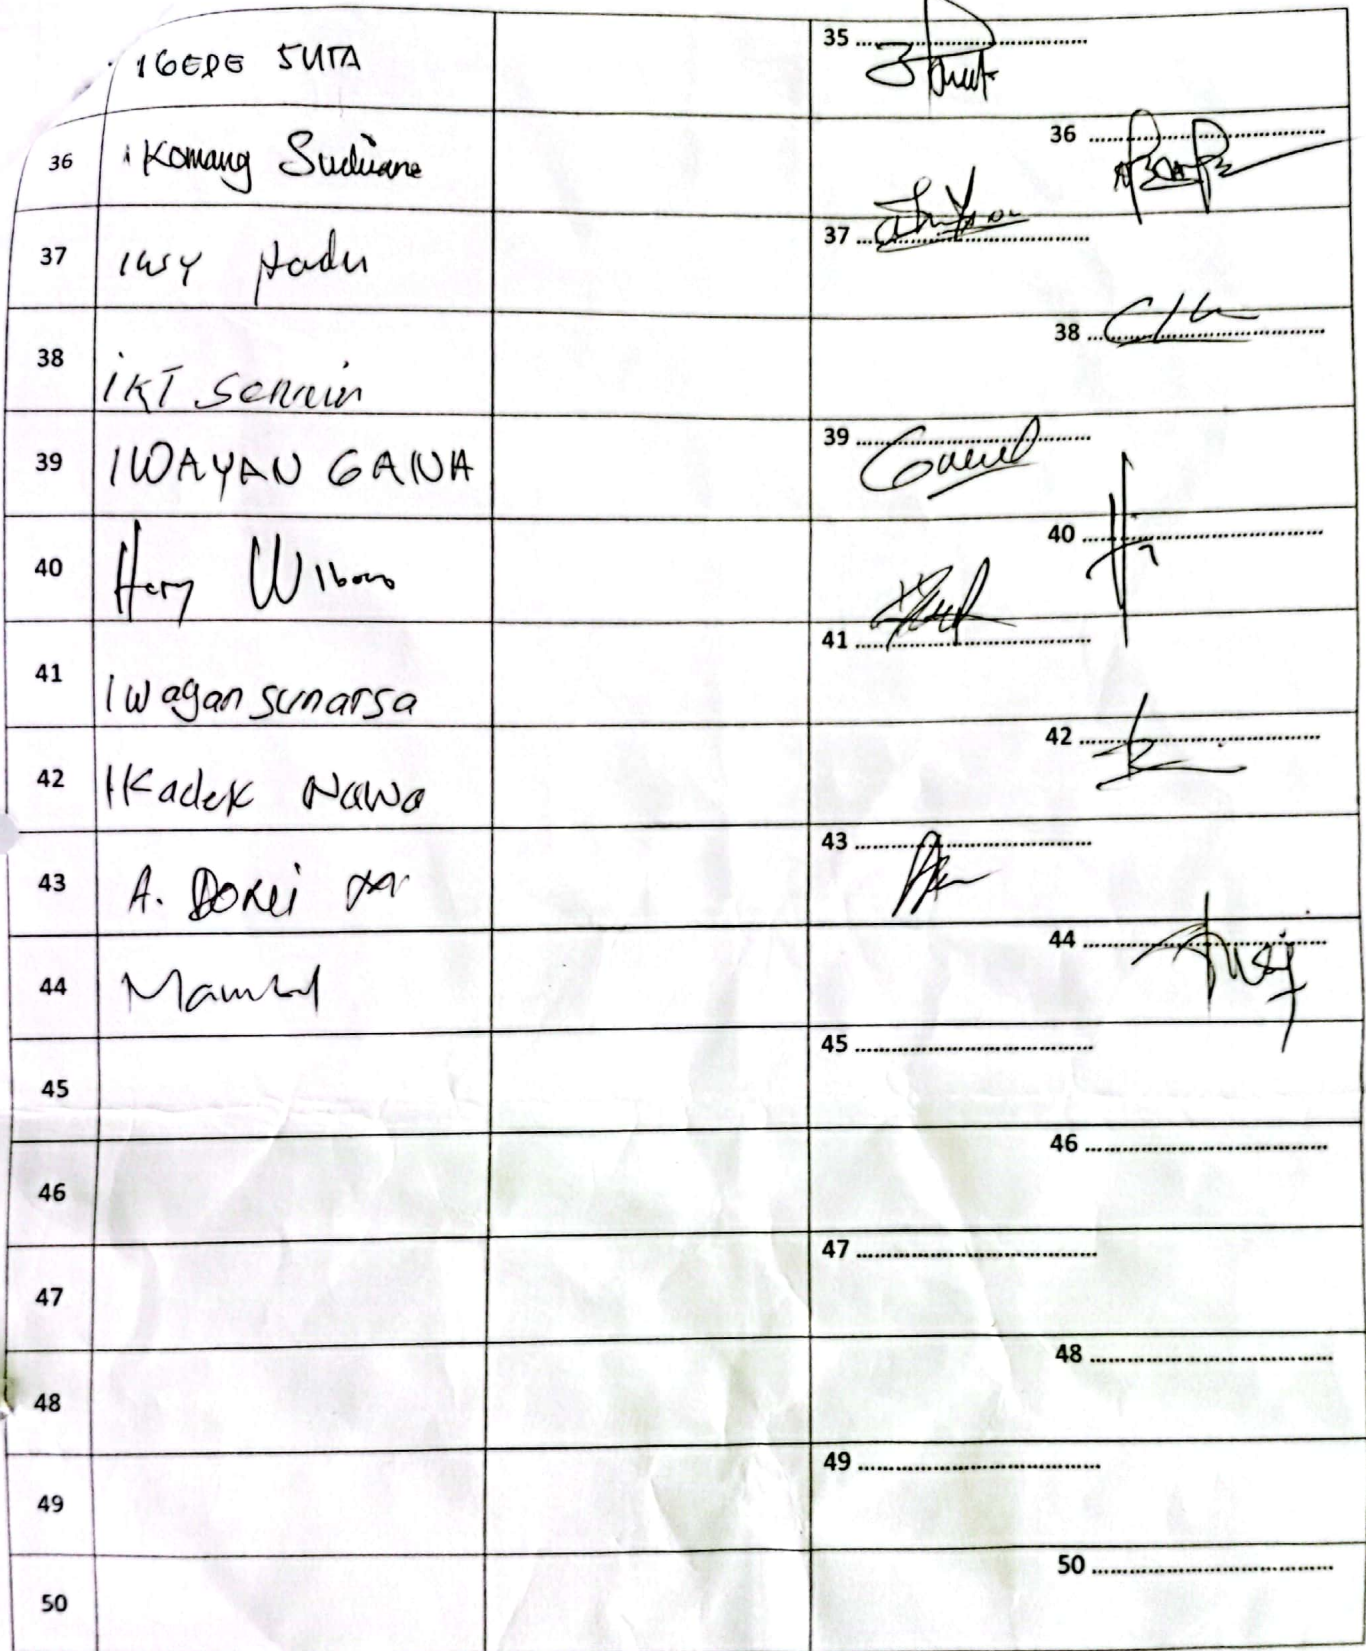 I GEDE SUTA
35
36 I Komang Sudiana
36
37 I WSY
37
38 IKT
38
39 I WAYAN GANA
39
40 Hery Wibowo
40
41 I Wayan sunarsa
41
42 I Kadek Nawa
42
43 A.
43
44
44
45
45
46
46
47
47
48
48
49
49
50
50